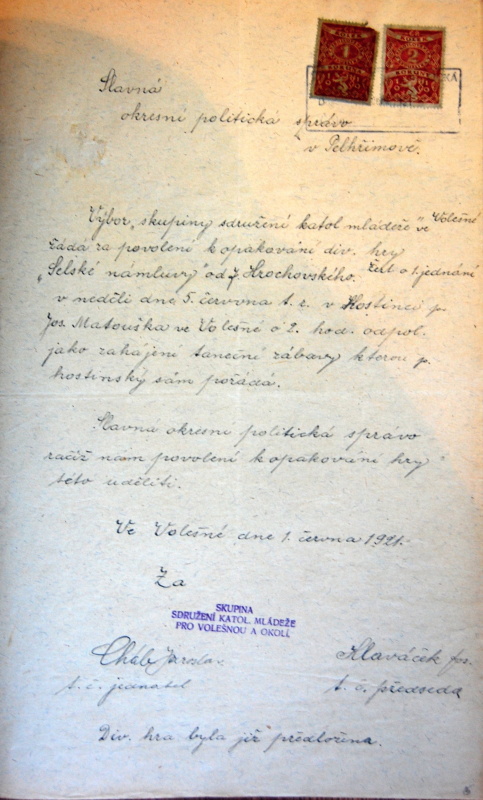 Slavná
okresní politická správo
v Pelhřimově.
Výbor „skupiny sdružení katol mládeže" ve Volešné
žádá za povolení k opakování div. hry
„Selské námluvy" od J Hrochovského. Žert o 1. jednání
v neděli dne 5. června t. r. v Hostinci p.
Jos. Matouška ve Volešné o 2. hod. odpol.
jako zahájení taneční zábavy kterou p.
hostinský sám pořádá.
Slavná okresní politická správo
račiž nám povolení k opakování hry
této uděliti.
Ve Volešné dne 1. června 1921.
Za
SKUPINA
SDRUŽENÍ KATOL. MLÁDEŽE
PRO VOLEŠNOU A OKOLÍ
Cháb Jaroslav. Hlaváček Jos.
t. č. jednatel t. č. předseda
Div. hra byla již předložena.